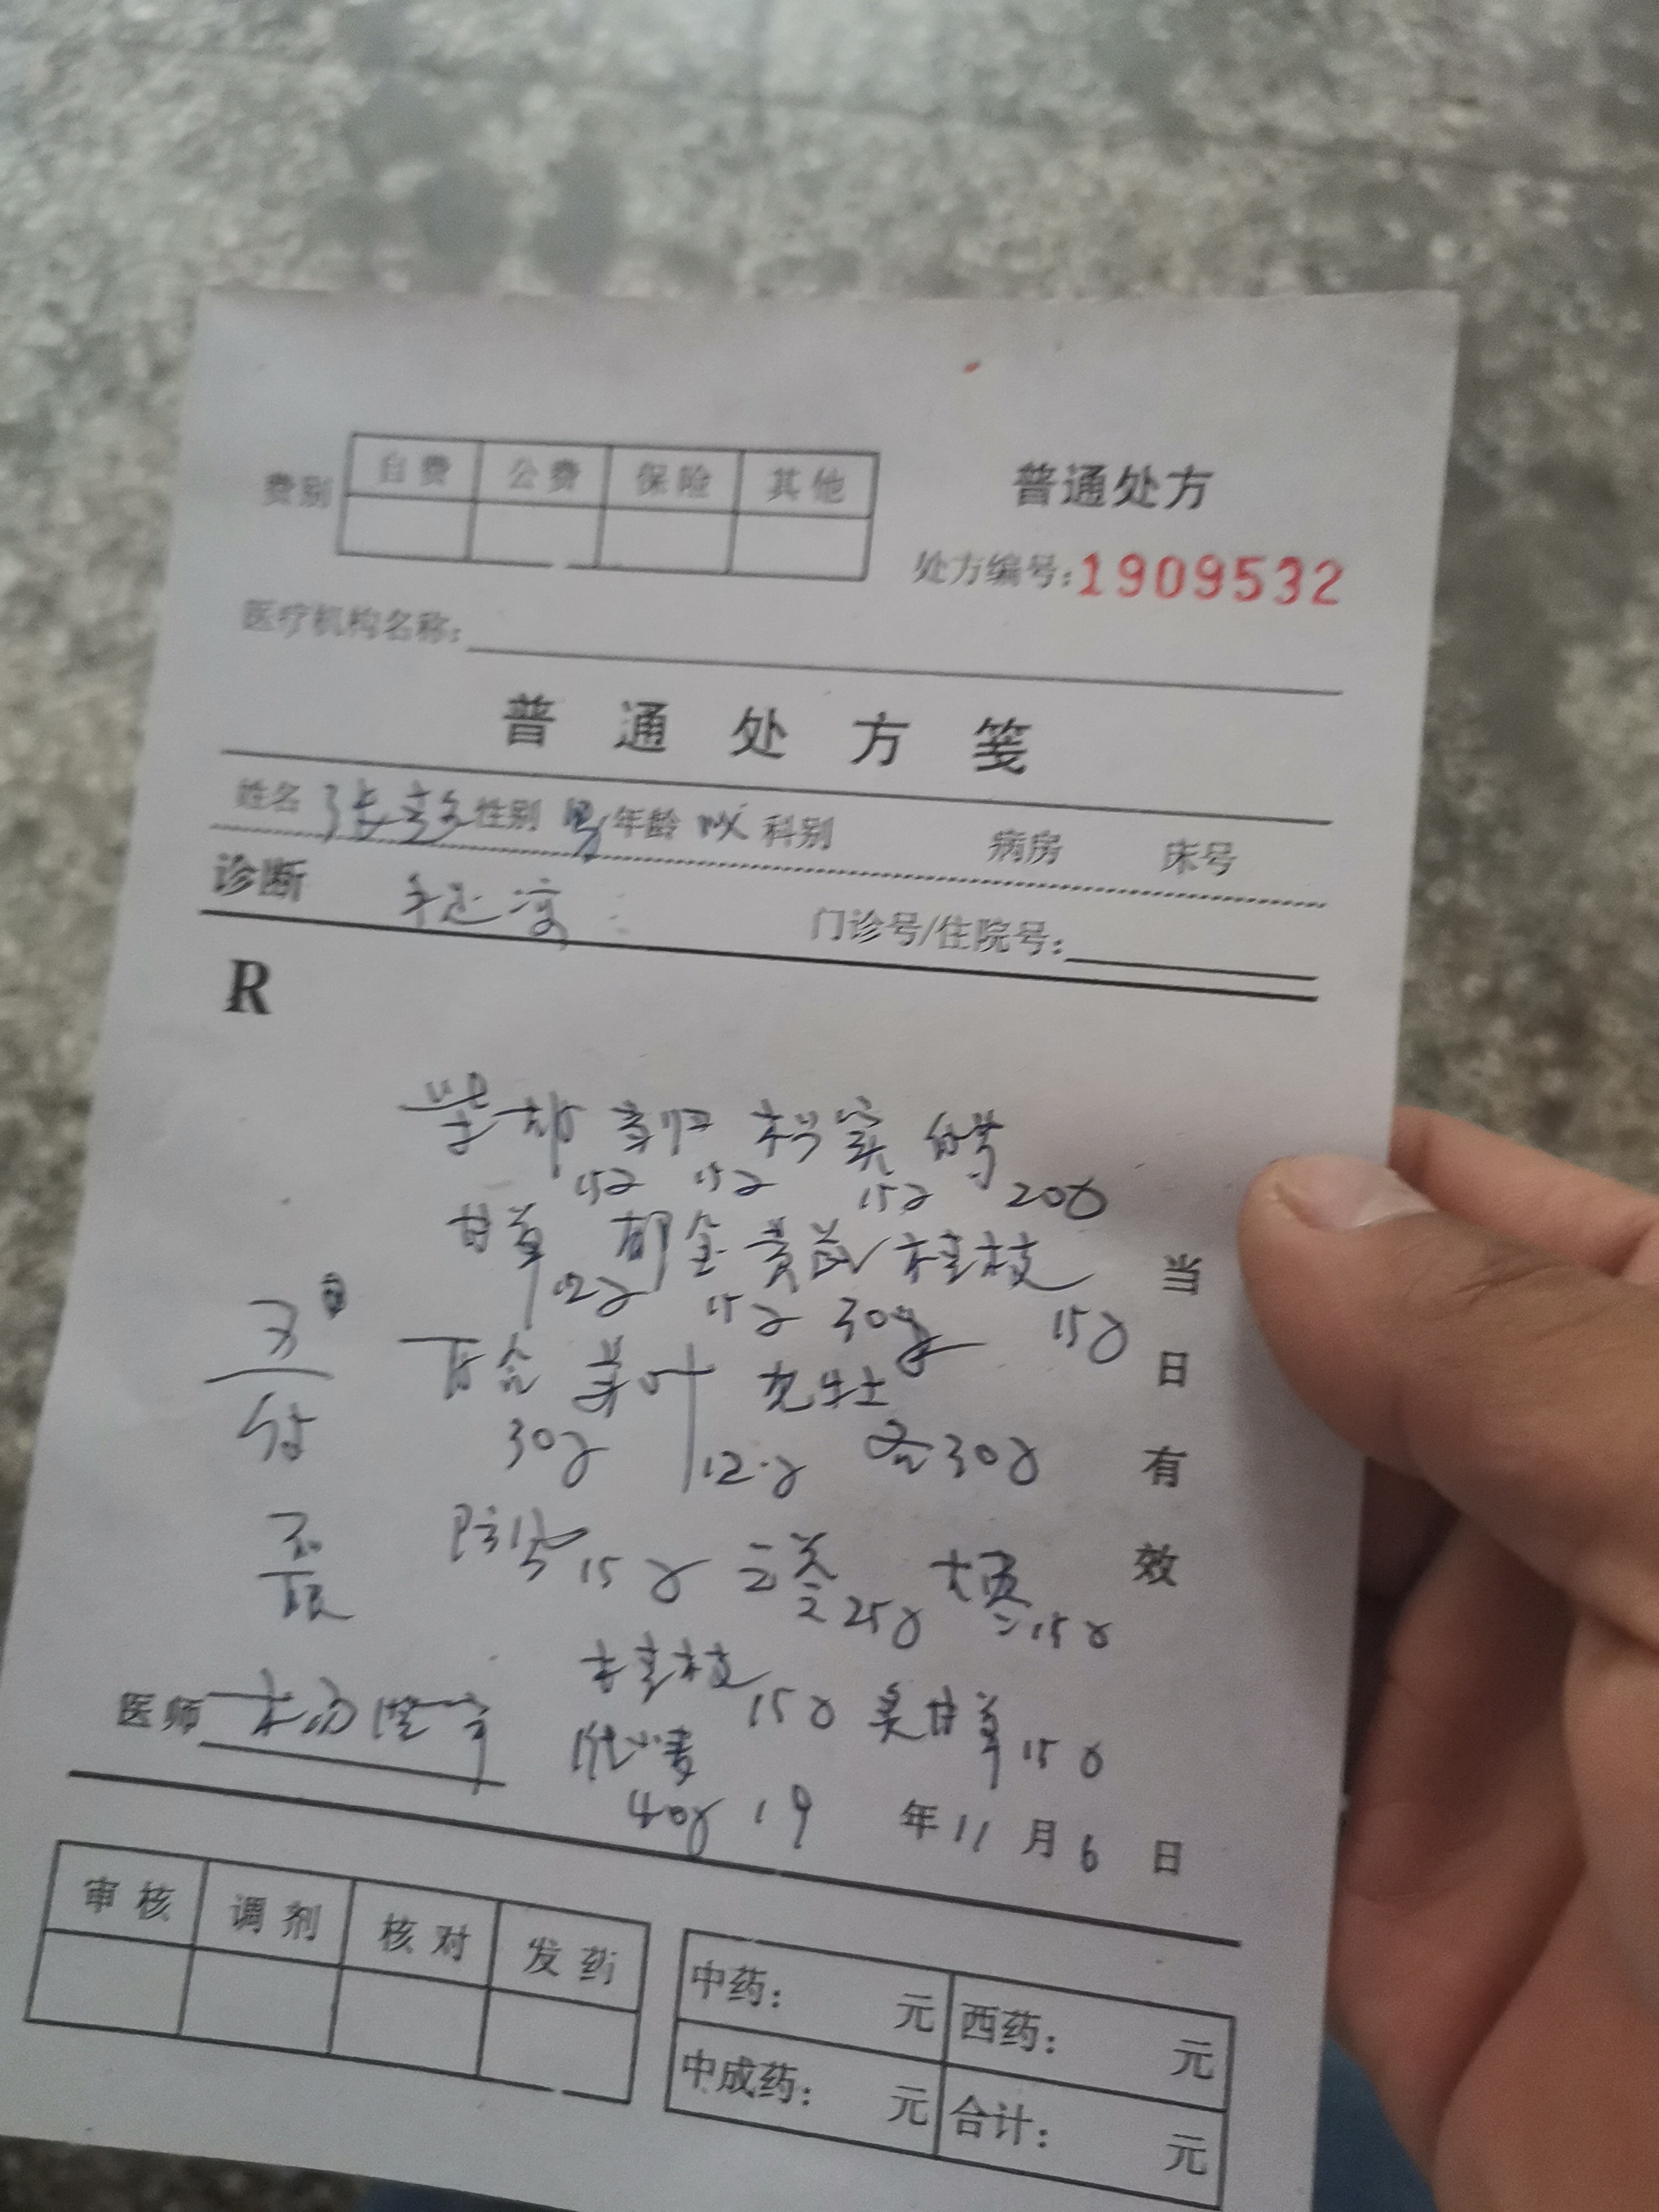 普通处方
费别 自费 公费 保险 其他
处方编号:1909532
医疗机构名称:
普通处方笺
姓名 张 性别 男 年龄 科别 病房 床号
诊断 手足凉 门诊号/住院号:
R
柴胡 当归 枳实 白芍
15g 15g 15g 20g
甘草 郁金 黄芪 桂枝
12g 15g 30g 15g
百合 苏叶 龙牡
30g 12g 各30g
防 15g 25g 15g
桂枝 15g 炙甘草 15g
小麦
40g
当日有效
医师
19 年 11 月 6 日
审核 调剂 核对 发药
中药: 元 西药: 元
中成药: 元 合计: 元